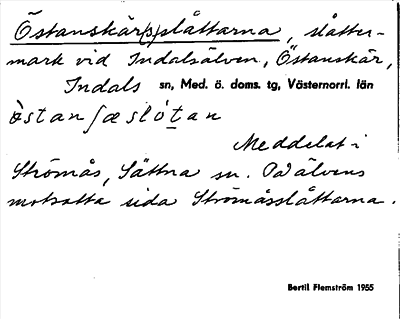 Östanskär(s)slåttarna, slåtter-
mark vid Indalsälven, Östanskär,
Indals sn, Med. ö. doms. tg, Västernorrl. län
östanʃæslòtan
Meddelat i
Strömås, Sättna sn. På älvens
motsatta sida Strömåsslåttarna.
Bertil Flemström 1955